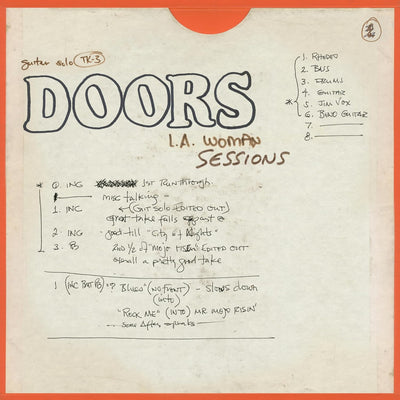 guitar solo TK-3
DOORS
L.A. WOMAN
SESSIONS
1. RHODES
2. BASS
3. DRUMS
4. GUITAR
5. JIM VOX
6. BEND GUITAR
7.
8.
0. INC 1st Run through
misc talking
1. INC (GUIT SOLO EDITED OUT)
great take falls apart @
2. INC good till "City of Nights"
3. 2nd 1/2 of "MOJO RISIN" EDITED OUT
overall a pretty good take
1 "? BLUES" (NO FRONT) - Slows down
(INTO)
"ROCK ME" (INTO) MR MOJO RISIN'
some After